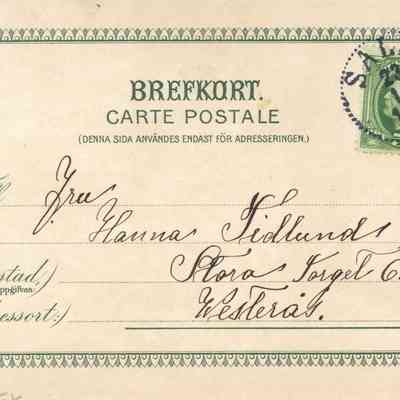 BREFKORT.
CARTE POSTALE
(DENNA SIDA ANVÄNDES ENDAST FÖR ADRESSERINGEN.)
SAL
Fru
Hanna Tidlund
Stora Torget
Westerås.